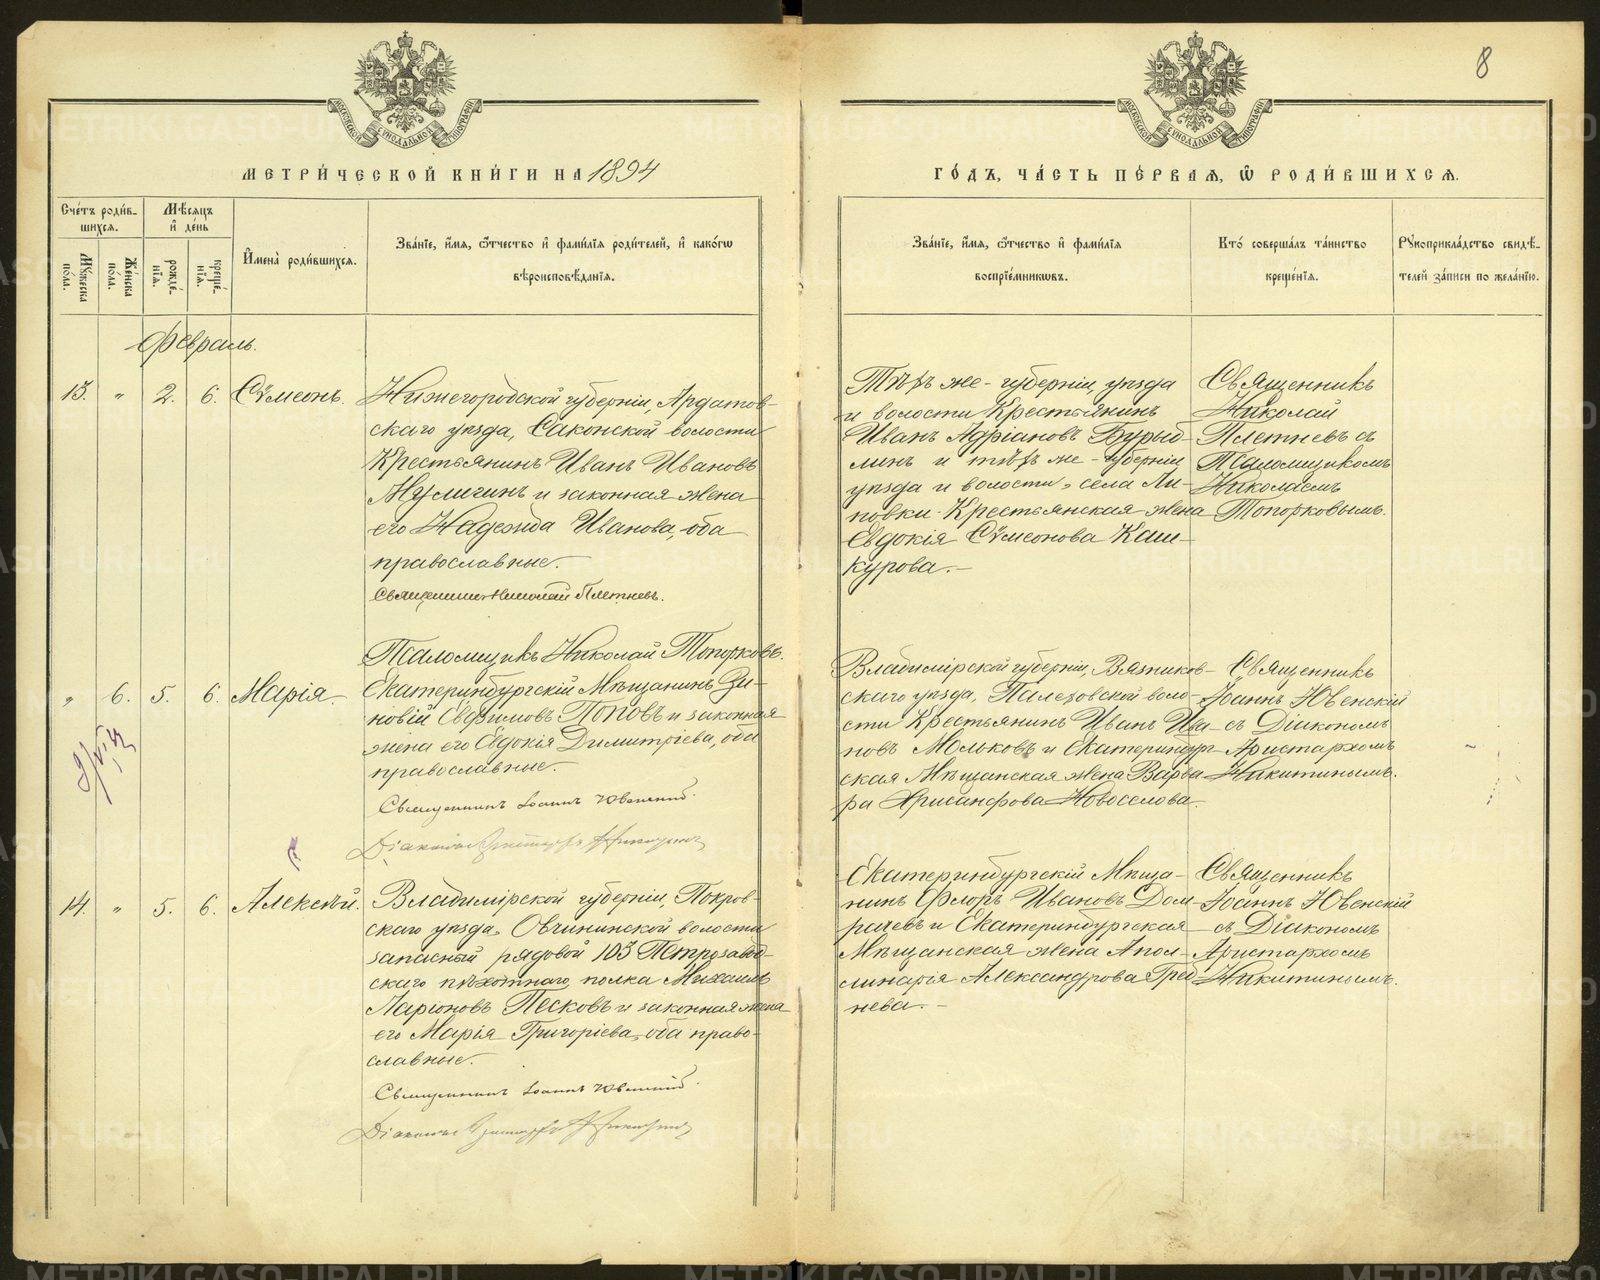 8
МОСКОВСКОЙ СѴНОДАЛЬНОЙ ТИПОГРАФІИ
МОСКОВСКОЙ СѴНОДАЛЬНОЙ ТИПОГРАФІИ
МЕТРИ́ЧЕСКОЙ КНИ́ГИ НА 1894
ГО́ДЪ, ЧА́СТЬ ПЕ́РВАѦ, Ѿ РОДИ́ВШИХСѦ.
Сче́тъ роди́в-
шихсѧ.
Мꙋ́жеска по́ла.
Же́нска по́ла.
Мѣ́сѧцъ
и҆ де́нь
рожде́-
нїѧ.
креще́-
нїѧ.
И҆мена̀ роди́вшихсѧ.
Зва́нїе, и҆́мѧ, ѻ҆́тчество и҆ фами́лїѧ роди́телей, и҆ како́гѡ
вѣроисповѣ́данїѧ.
Зва́нїе, и҆́мѧ, ѻ҆́тчество и҆ фами́лїѧ
воспрїе́мникѡвъ.
Кто̀ соверша́лъ та́инство
креще́нїѧ.
Рꙋкоприкла́дство свидѣ́-
телей за́писи по жела́нїю.
Февраль.
13. " 2. 6. Сѵмеонъ.
Нижегородской губерніи, Ардатов-
скаго уѣзда, Саконской волости
Крестьянинъ Иванъ Ивановъ
и законная жена
его Надежда Иванова, оба
православные.
Священникъ Николай Плетневъ.
Псаломщикъ Николай Топорковъ.
Тѣхъ же - губерніи, уѣзда
и волости Крестьянинъ
Иванъ Адріановъ Бурыд-
линъ и тѣхъ же - губерніи
уѣзда и волости, села Ли-
повки Крестьянская жена
Евдокія Сѵмеонова Каш-
курова.-
Священникъ
Николай
Плетневъ съ
Псаломщикомъ
Николаемъ
Топорковымъ.
" 6. 5. 6. Марія.
Екатеринбургскій Мѣщанинъ Зи-
новій Евфимовъ Поповъ и законная
жена его Евдокія Димитріева, оба
православные.
Священникъ Іоаннъ Ювенскій.
Діаконъ Аристархъ Никитинъ
Владимірской губерніи, Вязников-
скаго уѣзда, Палеховской воло-
сти Крестьянинъ Иванъ Ива-
новъ Мольковъ и Екатеринбург-
ская Мѣщанская жена Варва-
ра Хрисанфова Новоселова.
Священникъ
Іоаннъ Ювенскій
съ Діакономъ
Аристархомъ
Никитинымъ.
14. " 5. 6. Алексѣй.
Владимірской губерніи, Покров-
скаго уѣзда, Овчининской волости
запасный рядовой 103 Петрозавод-
скаго пѣхотнаго полка Михаилъ
Ларіоновъ Песковъ и законная жена
его Марія Григоріева, оба право-
славные.
Священникъ Іоаннъ Ювенскій.
Діаконъ Аристархъ Никитинъ
Екатеринбургскій Мѣща-
нинъ Флоръ Ивановъ Дом-
рачевъ и Екатеринбургская
Мѣщанская жена Апол-
линарія Александрова Греб-
нева.-
Священникъ
Іоаннъ Ювенскій
съ Діакономъ
Аристархомъ
Никитинымъ.
METRIKI.GASO-URAL.RU